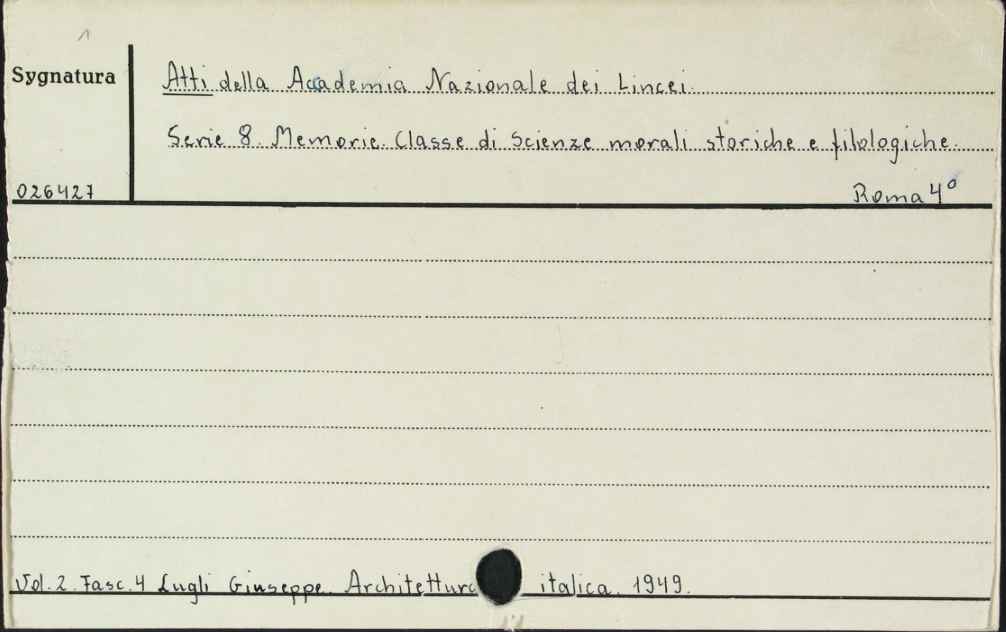 Sygnatura
Atti della Accademia Nazionale dei Lincei.
Serie 8. Memorie. Classe di Scienze morali storiche e filologiche.
026427
Roma 4°
Vol. 2. Fasc. 4 Lugli Giuseppe. Architettura italica. 1949.